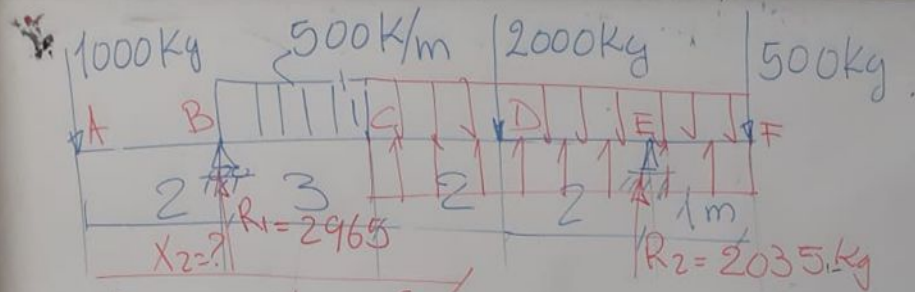 1000Kg 500K/m 2000Kg 500kg
A B C D E F
2 3 2 2 1m
R1=2965
X2=? R2=2035.Kg